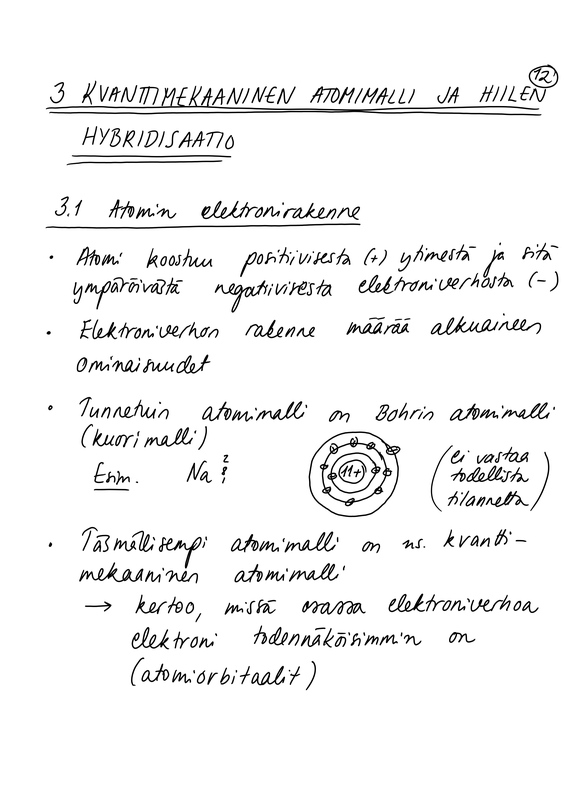 12
3 KVANTTIMEKAANINEN ATOMIMALLI JA HIILEN
HYBRIDISAATIO
3.1 Atomin elektronirakenne
• Atomi koostuu positiivisesta (+) ytimestä ja sitä
ympäröivästä negatiivisesta elektroniverhosta (-)
• Elektroniverhon rakenne määrää alkuaineen
ominaisuudet
• Tunnetuin atomimalli on Bohrin atomimalli
(kuorimalli)
Esim. Na 2 8 1 11+ (ei vastaa
todellista
tilannetta)
• Täsmällisempi atomimalli on ns. kvantti-
mekaaninen atomimalli
→ kertoo, missä osassa elektroniverhoa
elektroni todennäköisimmin on
(atomiorbitaalit)